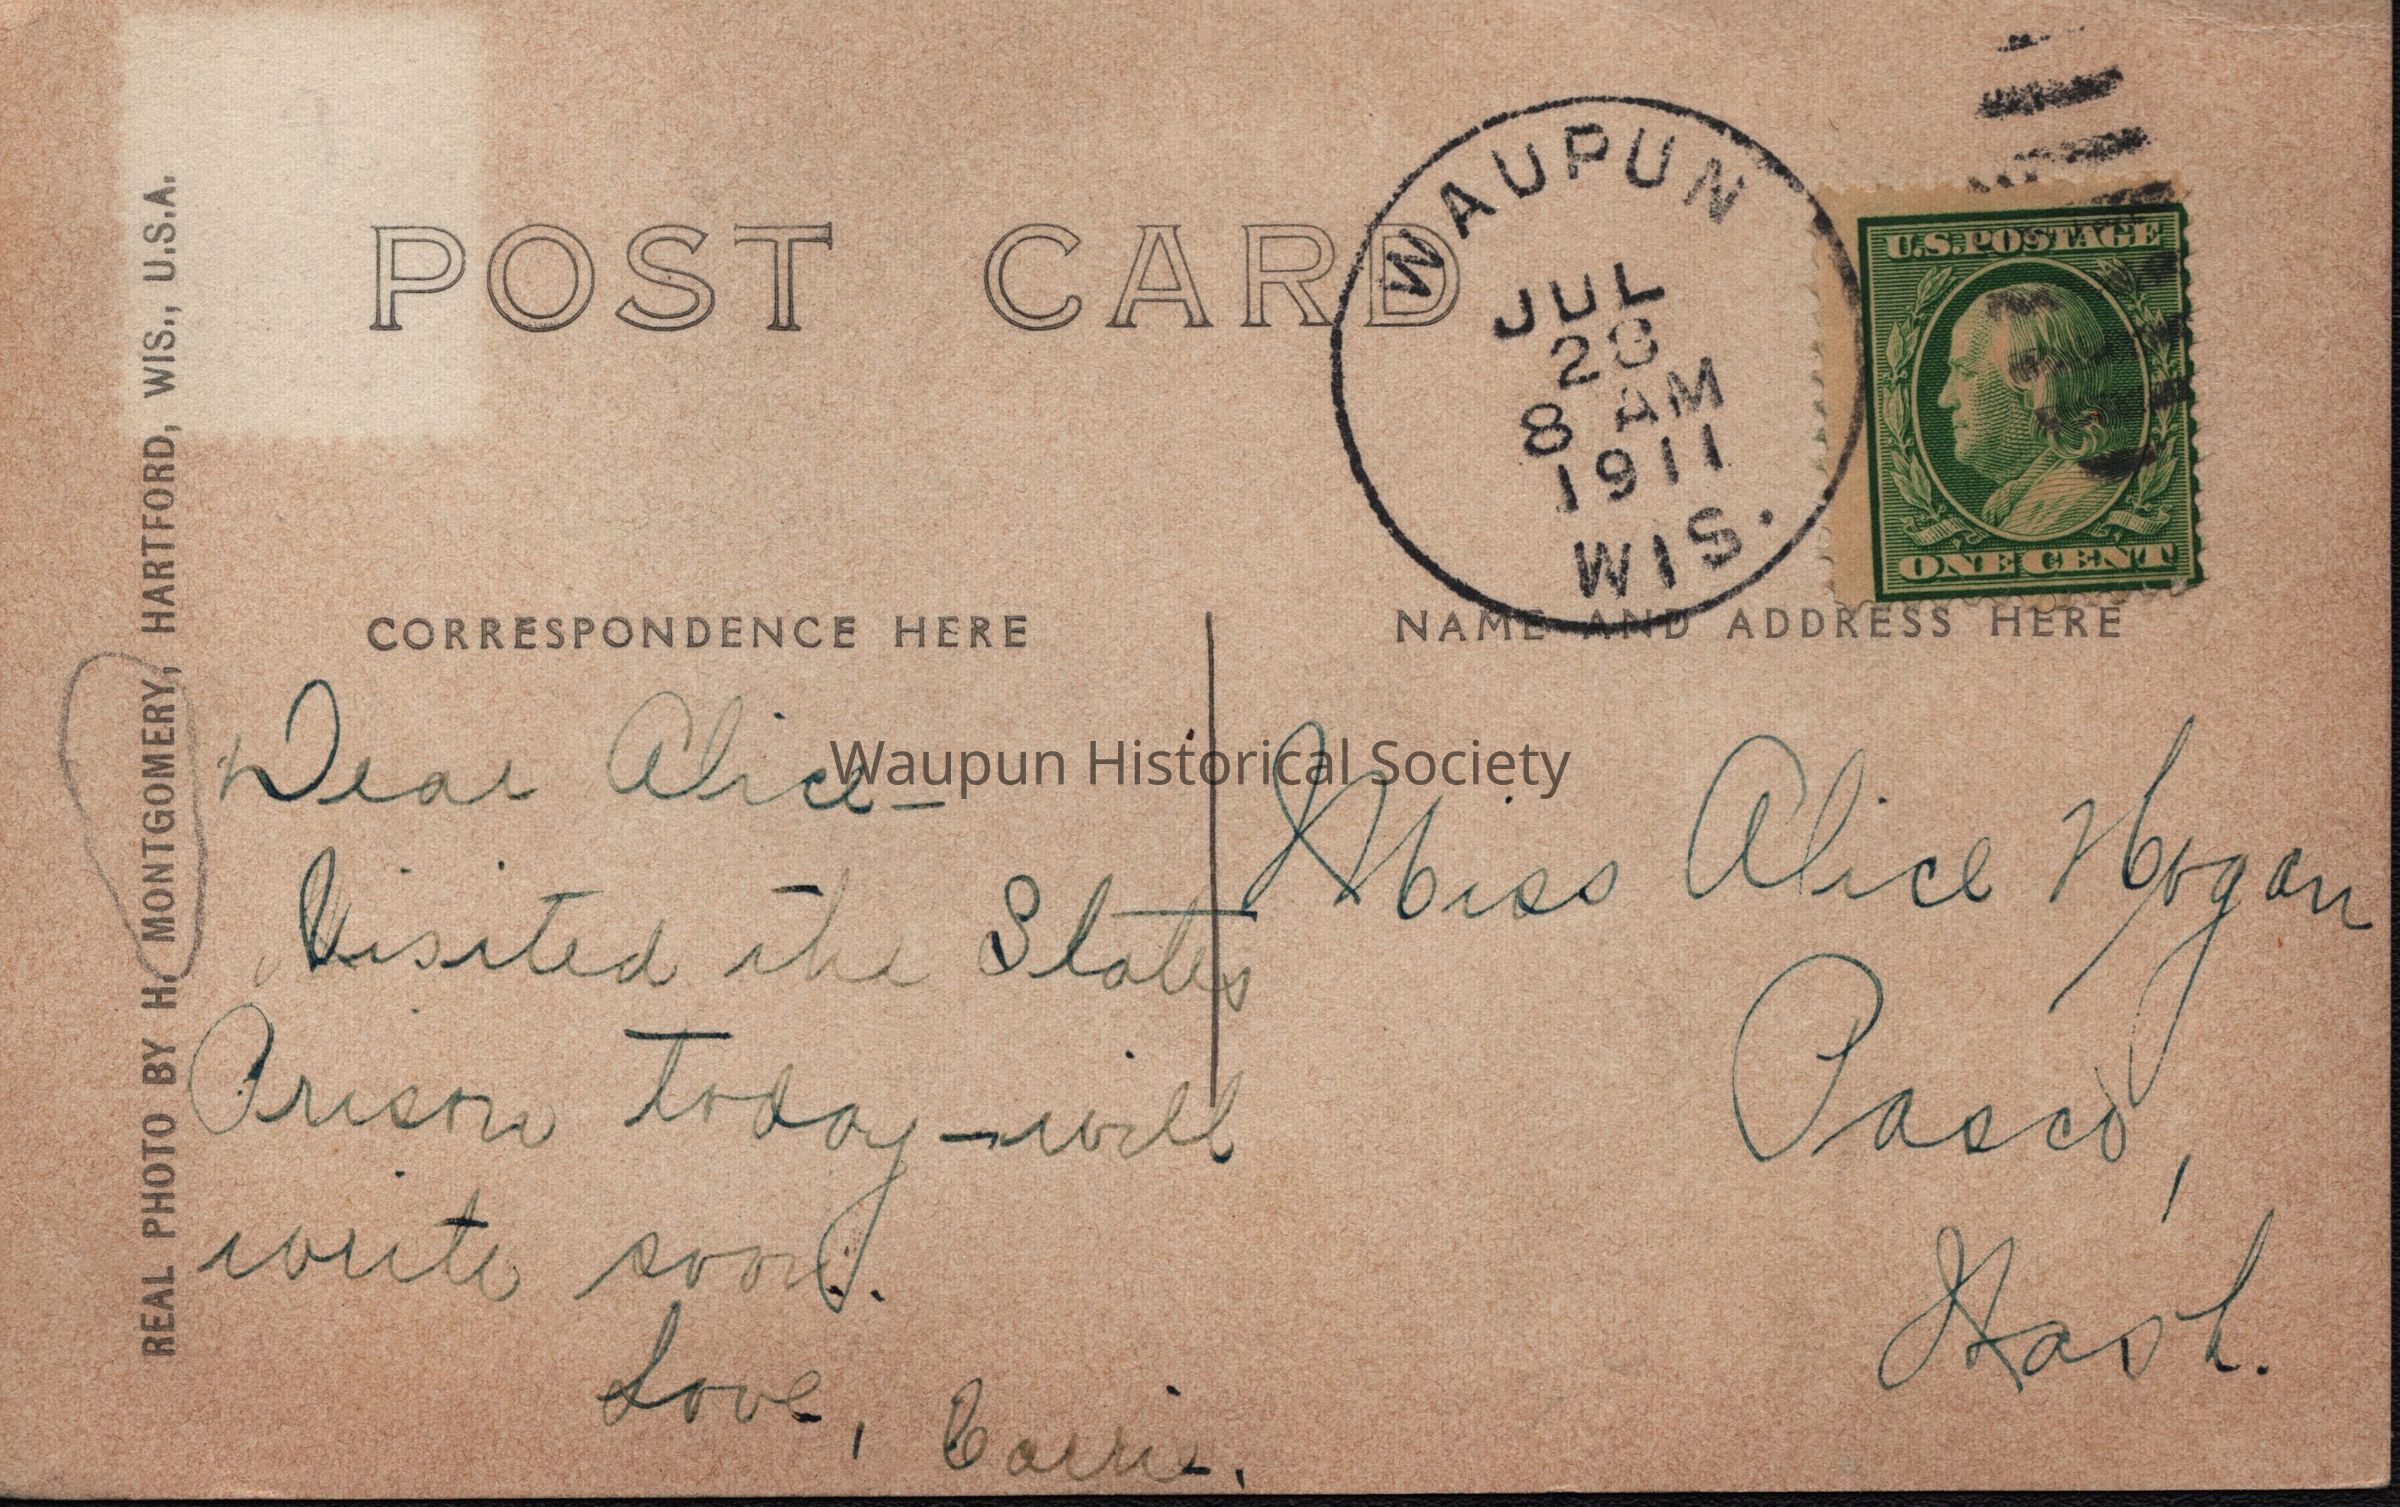 POST CARD
WAUPUN
JUL
28
8 AM
1911
WIS.
U.S. POSTAGE
ONE CENT
REAL PHOTO BY H. MONTGOMERY, HARTFORD, WIS., U.S.A.
CORRESPONDENCE HERE
NAME AND ADDRESS HERE
Waupun Historical Society
Dear Alice-
Visited the States
Prison today - will
write soon.
Love, Carrie.
Miss Alice Hogan
Pasco,
Wash.